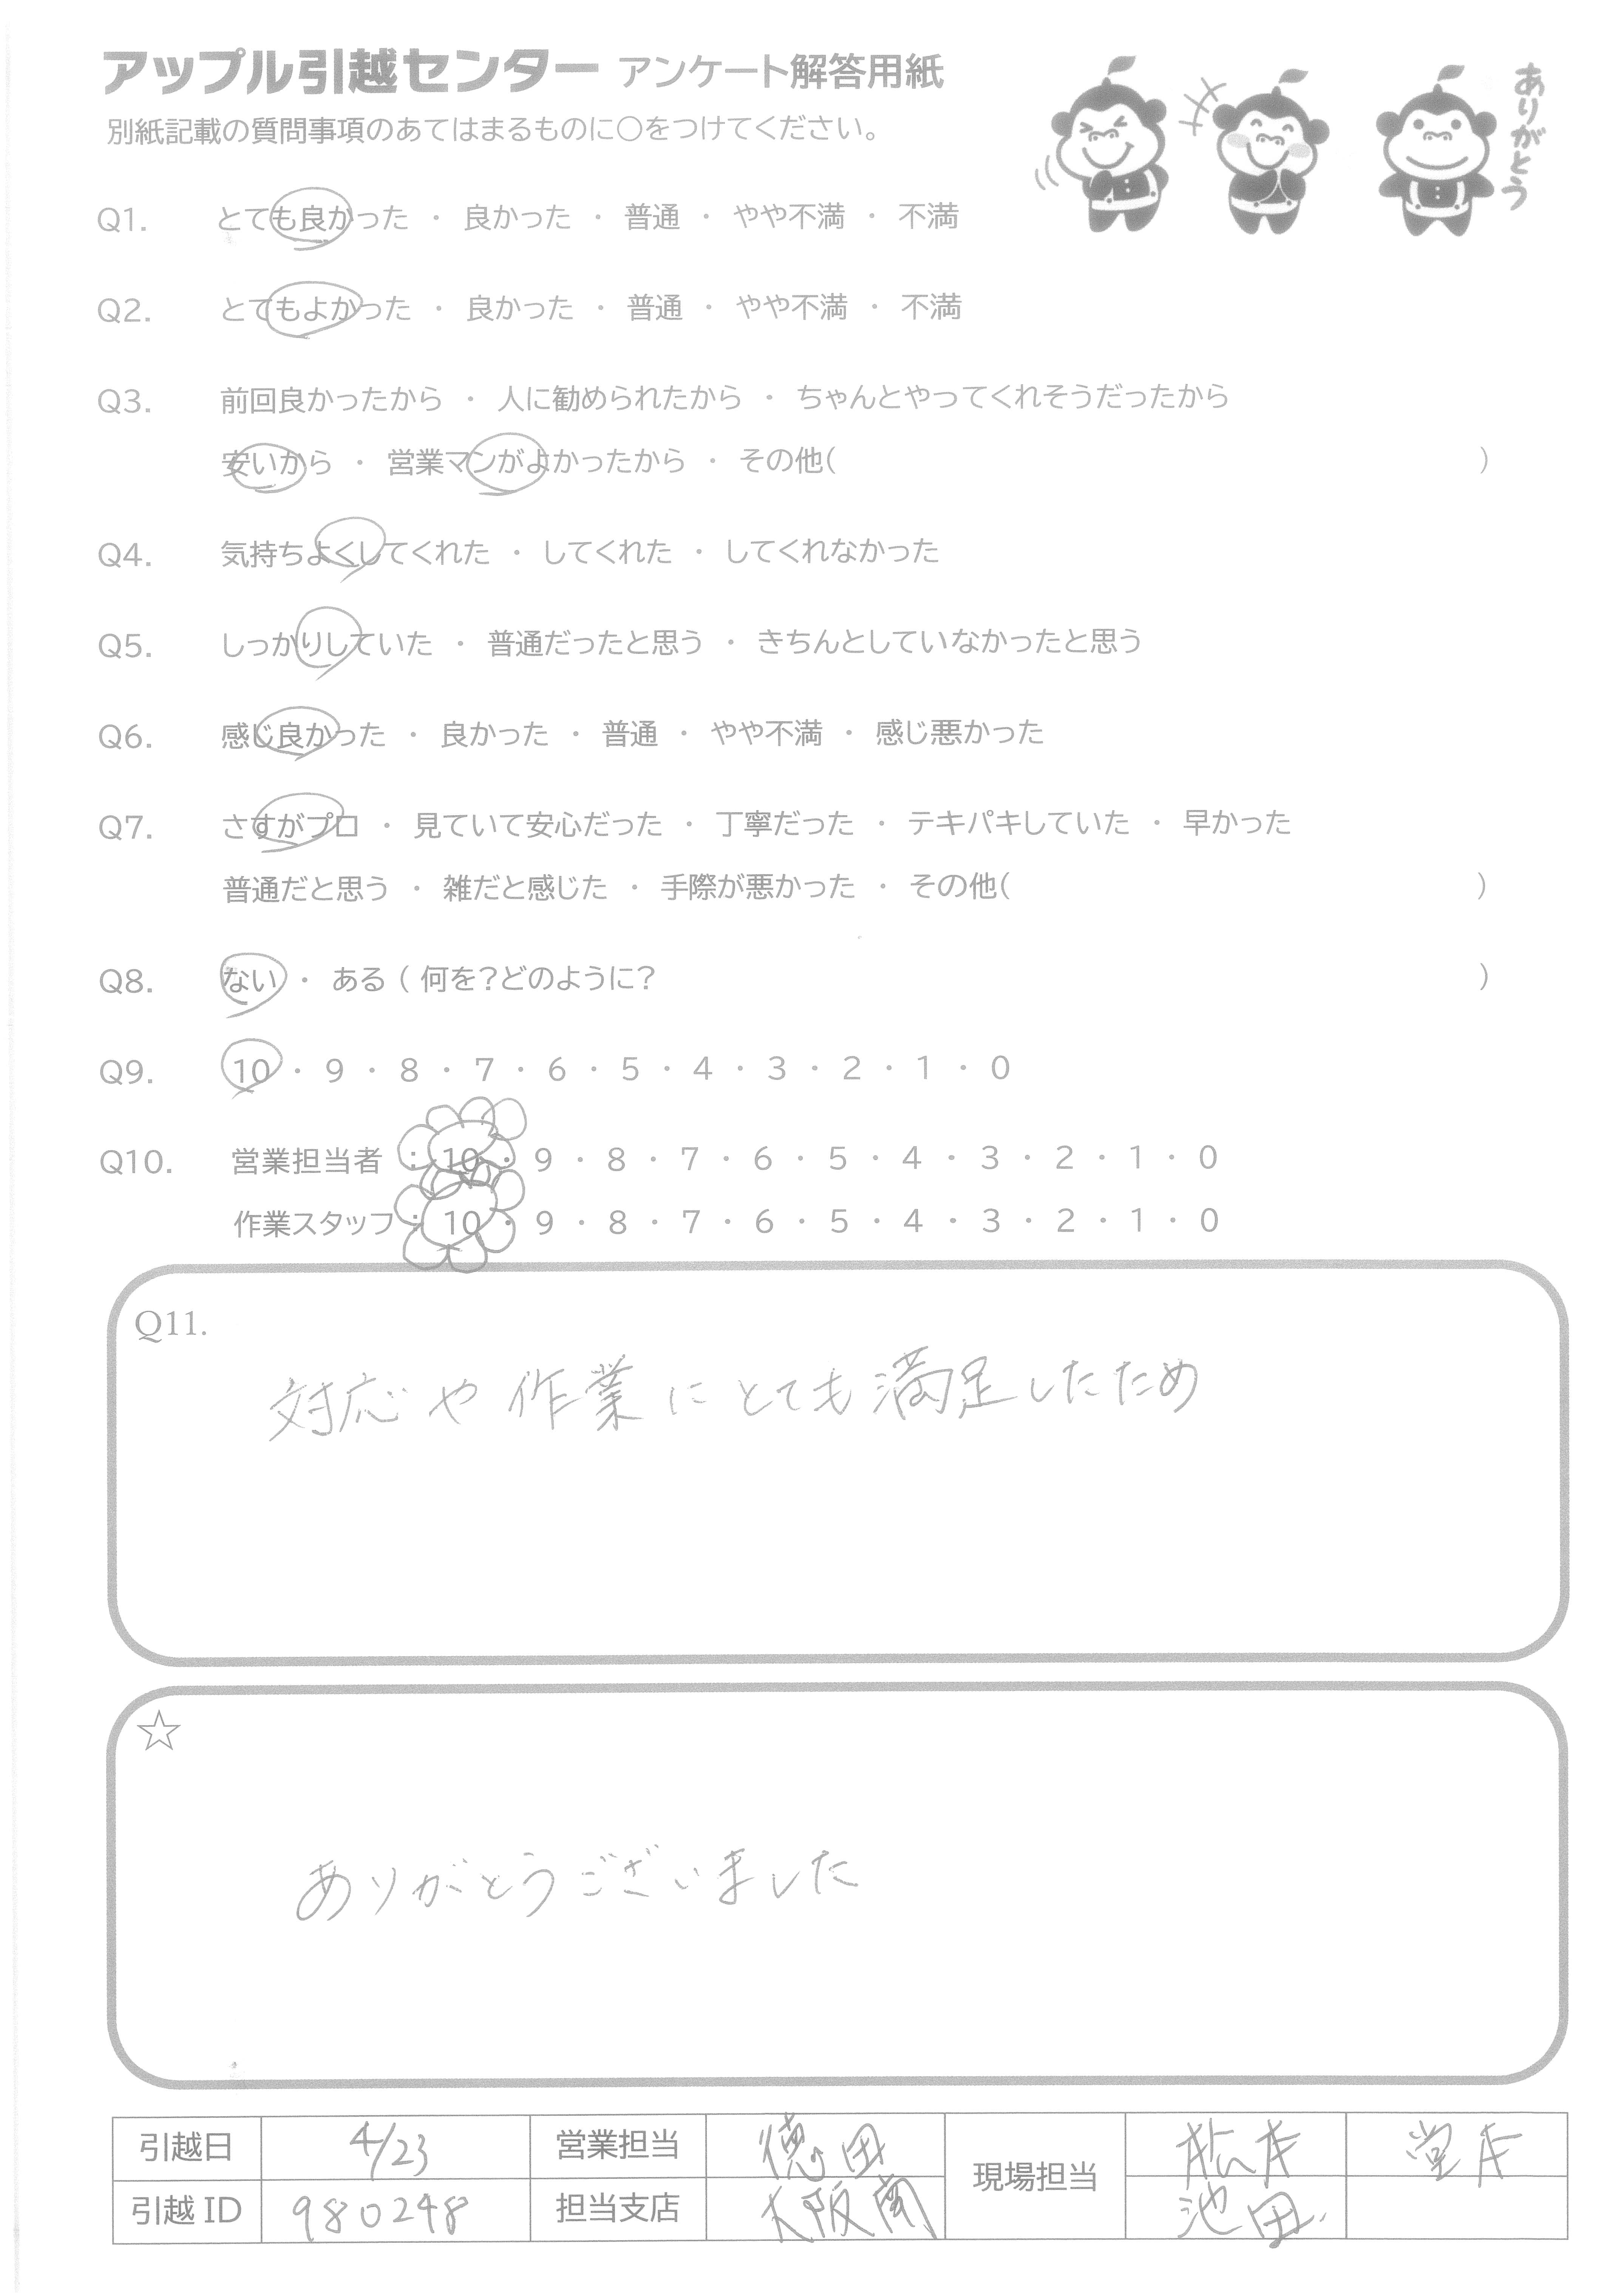 アップル引越センター アンケート解答用紙
別紙記載の質問事項のあてはまるものに○をつけてください。
ありがとう
Q1. とても良かった ・ 良かった ・ 普通 ・ やや不満 ・ 不満
Q2. とてもよかった ・ 良かった ・ 普通 ・ やや不満 ・ 不満
Q3. 前回良かったから ・ 人に勧められたから ・ ちゃんとやってくれそうだったから
安いから ・ 営業マンがよかったから ・ その他( )
Q4. 気持ちよくしてくれた ・ してくれた ・ してくれなかった
Q5. しっかりしていた ・ 普通だったと思う ・ きちんとしていなかったと思う
Q6. 感じ良かった ・ 良かった ・ 普通 ・ やや不満 ・ 感じ悪かった
Q7. さすがプロ ・ 見ていて安心だった ・ 丁寧だった ・ テキパキしていた ・ 早かった
普通だと思う ・ 雑だと感じた ・ 手際が悪かった ・ その他( )
Q8. ない ・ ある ( 何を?どのように? )
Q9. 10 ・ 9 ・ 8 ・ 7 ・ 6 ・ 5 ・ 4 ・ 3 ・ 2 ・ 1 ・ 0
Q10. 営業担当者 : 10 ・ 9 ・ 8 ・ 7 ・ 6 ・ 5 ・ 4 ・ 3 ・ 2 ・ 1 ・ 0
作業スタッフ : 10 ・ 9 ・ 8 ・ 7 ・ 6 ・ 5 ・ 4 ・ 3 ・ 2 ・ 1 ・ 0
Q11.
対応や作業にとても満足したため
☆
ありがとうございました
引越日 4/23 営業担当 徳田 現場担当 松本 堂本
引越ID 980248 担当支店 大阪南 池田